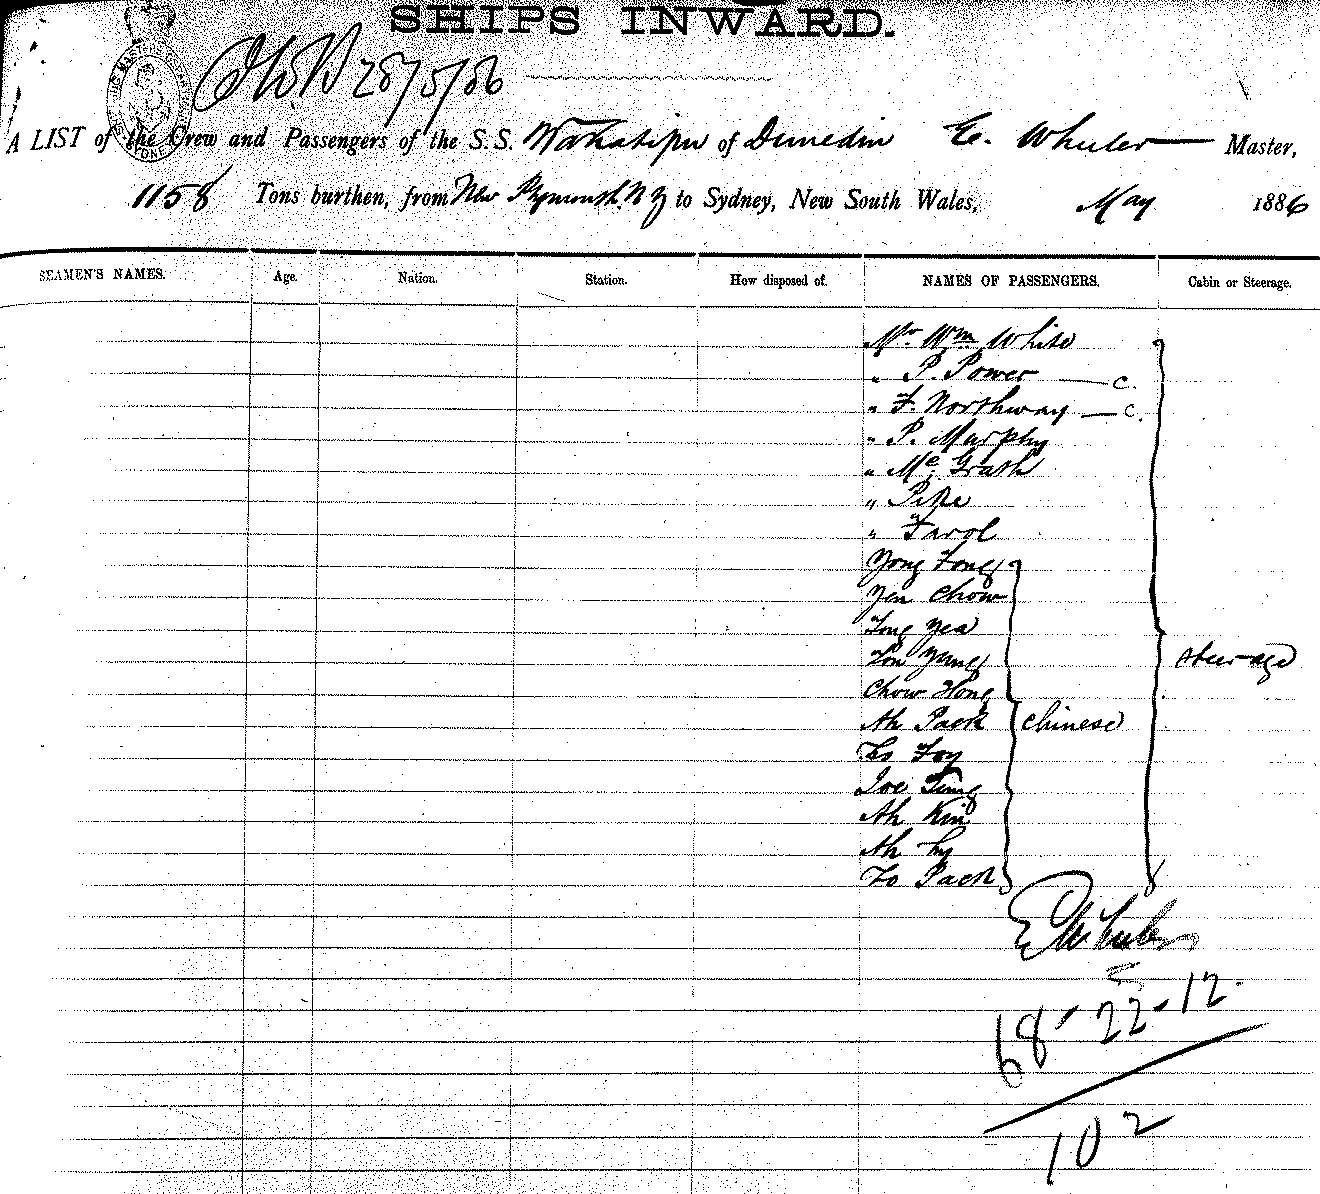 SHIPS INWARD.
28/5/86
A LIST of the Crew and Passengers of the S.S. Wakatipu of Dunedin E. Wheeler Master,
1158 Tons burthen, from New Plymouth N Z to Sydney, New South Wales, May 1886
SEAMEN'S NAMES. Age. Nation. Station. How disposed of. NAMES OF PASSENGERS. Cabin or Steerage.
Mr Wm White
" P. Power — c.
" F. Northway — c.
" P. Murphy
" Mc Grath
" Pike
" Farol
Yong Fong
Yen Chow
Fong Yea
Yung steerage
Chow Hong
Ah Pack Chinese
Foy
Joe
Ah Kin
Ah
Fo Pack
E Wheeler
68 - 22 - 12.
102